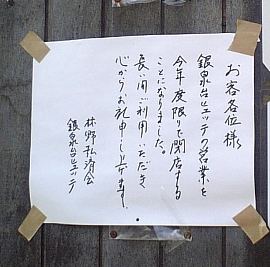 お客各位様
銀泉台ヒュッテの営業を
今年度限りで閉店する
ことになりました。
長い間ご利用いただき
心からお礼申し上げます。
林野弘済会
銀泉台ヒュッテ